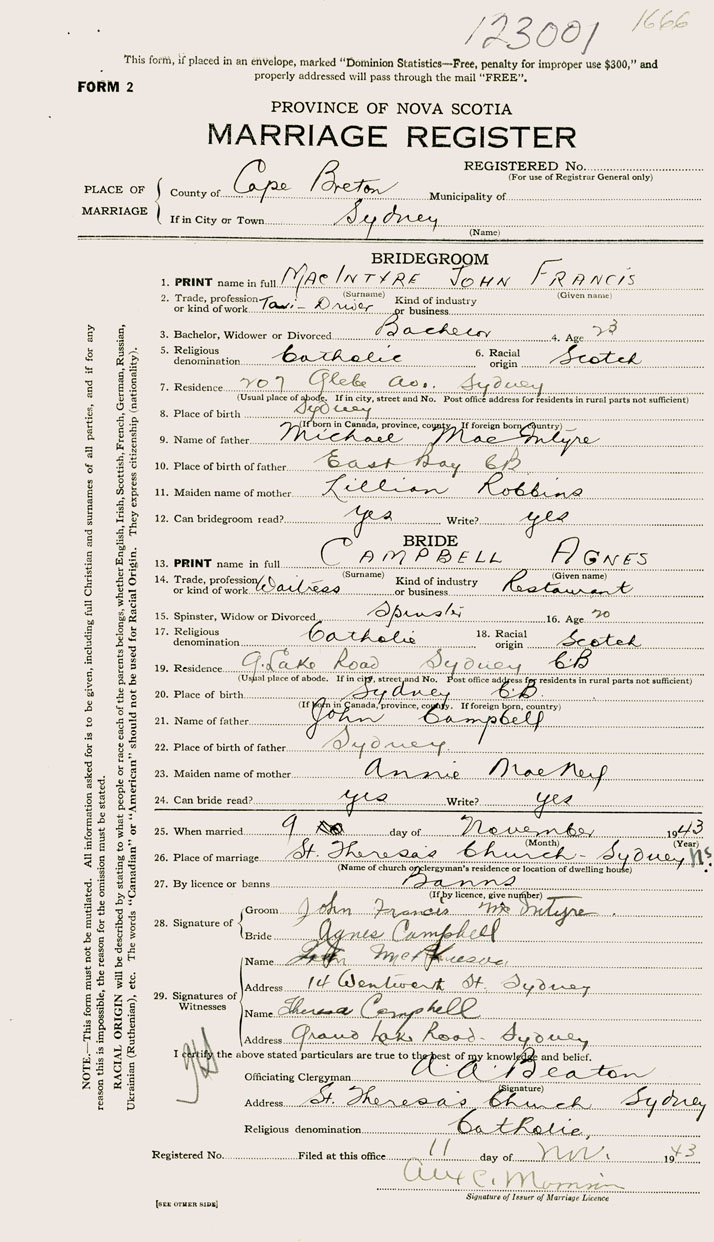 123001 1666
This form, if placed in an envelope, marked "Dominion Statistics—Free, penalty for improper use $300," and
properly addressed will pass through the mail "FREE".
FORM 2
PROVINCE OF NOVA SCOTIA
MARRIAGE REGISTER
REGISTERED No.
(For use of Registrar General only)
PLACE OF MARRIAGE
County of Cape Breton Municipality of
If in City or Town Sydney
(Name)
BRIDEGROOM
1. PRINT name in full MACINTYRE JOHN FRANCIS
(Surname) (Given name)
2. Trade, profession or kind of work Taxi-Driver Kind of industry or business
3. Bachelor, Widower or Divorced Bachelor 4. Age 23
5. Religious denomination Catholic 6. Racial origin Scotch
7. Residence 207 Glebe Av. Sydney
(Usual place of abode. If in city, street and No. Post office address for residents in rural parts not sufficient)
8. Place of birth Sydney
(If born in Canada, province, county. If foreign born, country)
9. Name of father Michael MacIntyre
10. Place of birth of father East Bay CB
11. Maiden name of mother Lillian Robbins
12. Can bridegroom read? yes Write? yes
BRIDE
13. PRINT name in full CAMPBELL AGNES
(Surname) (Given name)
14. Trade, profession or kind of work Waitress Kind of industry or business Restaurant
15. Spinster, Widow or Divorced Spinster 16. Age 20
17. Religious denomination Catholic 18. Racial origin Scotch
19. Residence G. Lake Road Sydney CB
(Usual place of abode. If in city, street and No. Post office address for residents in rural parts not sufficient)
20. Place of birth Sydney CB
(If born in Canada, province, county. If foreign born, country)
21. Name of father John Campbell
22. Place of birth of father Sydney
23. Maiden name of mother Annie MacNeil
24. Can bride read? yes Write? yes
25. When married 9 day of November 1943
(Month) (Year)
26. Place of marriage St. Theresa's Church - Sydney NS.
(Name of church or clergyman's residence or location of dwelling house)
27. By licence or banns Banns
(If by licence, give number)
28. Signature of
Groom John Francis McIntyre.
Bride Agnes Campbell
29. Signatures of Witnesses
Name
Address 14 Wentworth St. Sydney
Name Theresa Campbell
Address Grand Lake Road - Sydney
I certify the above stated particulars are true to the best of my knowledge and belief.
Officiating Clergyman A. A. Beaton
(Signature)
Address St. Theresa's Church Sydney
Religious denomination Catholic,
Registered No. Filed at this office 11 day of Nov. 1943
Alex C. Morrison
Signature of Issuer of Marriage Licence
[SEE OTHER SIDE]
NOTE.—This form must not be mutilated. All information asked for is to be given, including full Christian and surnames of all parties, and if for any
reason this is impossible, the reason for the omission must be stated.
RACIAL ORIGIN will be described by stating to what people or race each of the parents belongs, whether English, Irish, Scottish, French, German, Russian,
Ukrainian (Ruthenian), etc. The words "Canadian" or "American" should not be used for Racial Origin. They express citizenship (nationality).